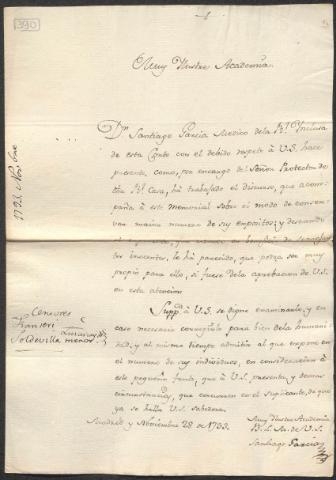 390
Muy Ilustre Academia.
Dn. Santiago Garcia Medico de la Rl. Inclusa
de esta Corte con el debido respeto à V.S. hace
presente, como, por encargo del Señor Protector de
dha Rl. Casa, hà trabajado el discurso, que acom-
paña à este memorial sobre el modo de conser-
var mayor numero de sus expositos; y deseando
tes inocentes, le hà parecido, que podrà ser muy
propio para ello, si fuese de la aprobacion de V.S.
en esta atencion
Suppca. à V.S. se digne examinarle, y en
caso necesario corregirlo para bien de la humani-
dad, y al mismo tiempo admitir al que expone en
el numero de sus individuos, en consideracion à
este pequeño fruto, que à V.S. presenta, y demas
circunstancias, que concurren en el suplicante, de que
ya se halla V.S. sabidora.
Madrid y Noviembre 28 de 1793.
Muy Ilustre Academia
B. L. M. de V.S.
Santiago Garcia
Censores
Franseri
Soldevilla menor